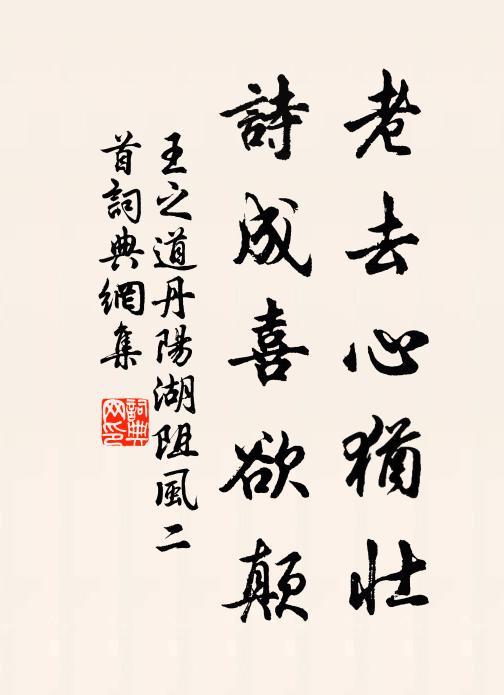 老去心猶壯
詩成喜欲顛
王之道丹陽湖阻風二
首詞典網集
詞典
网印